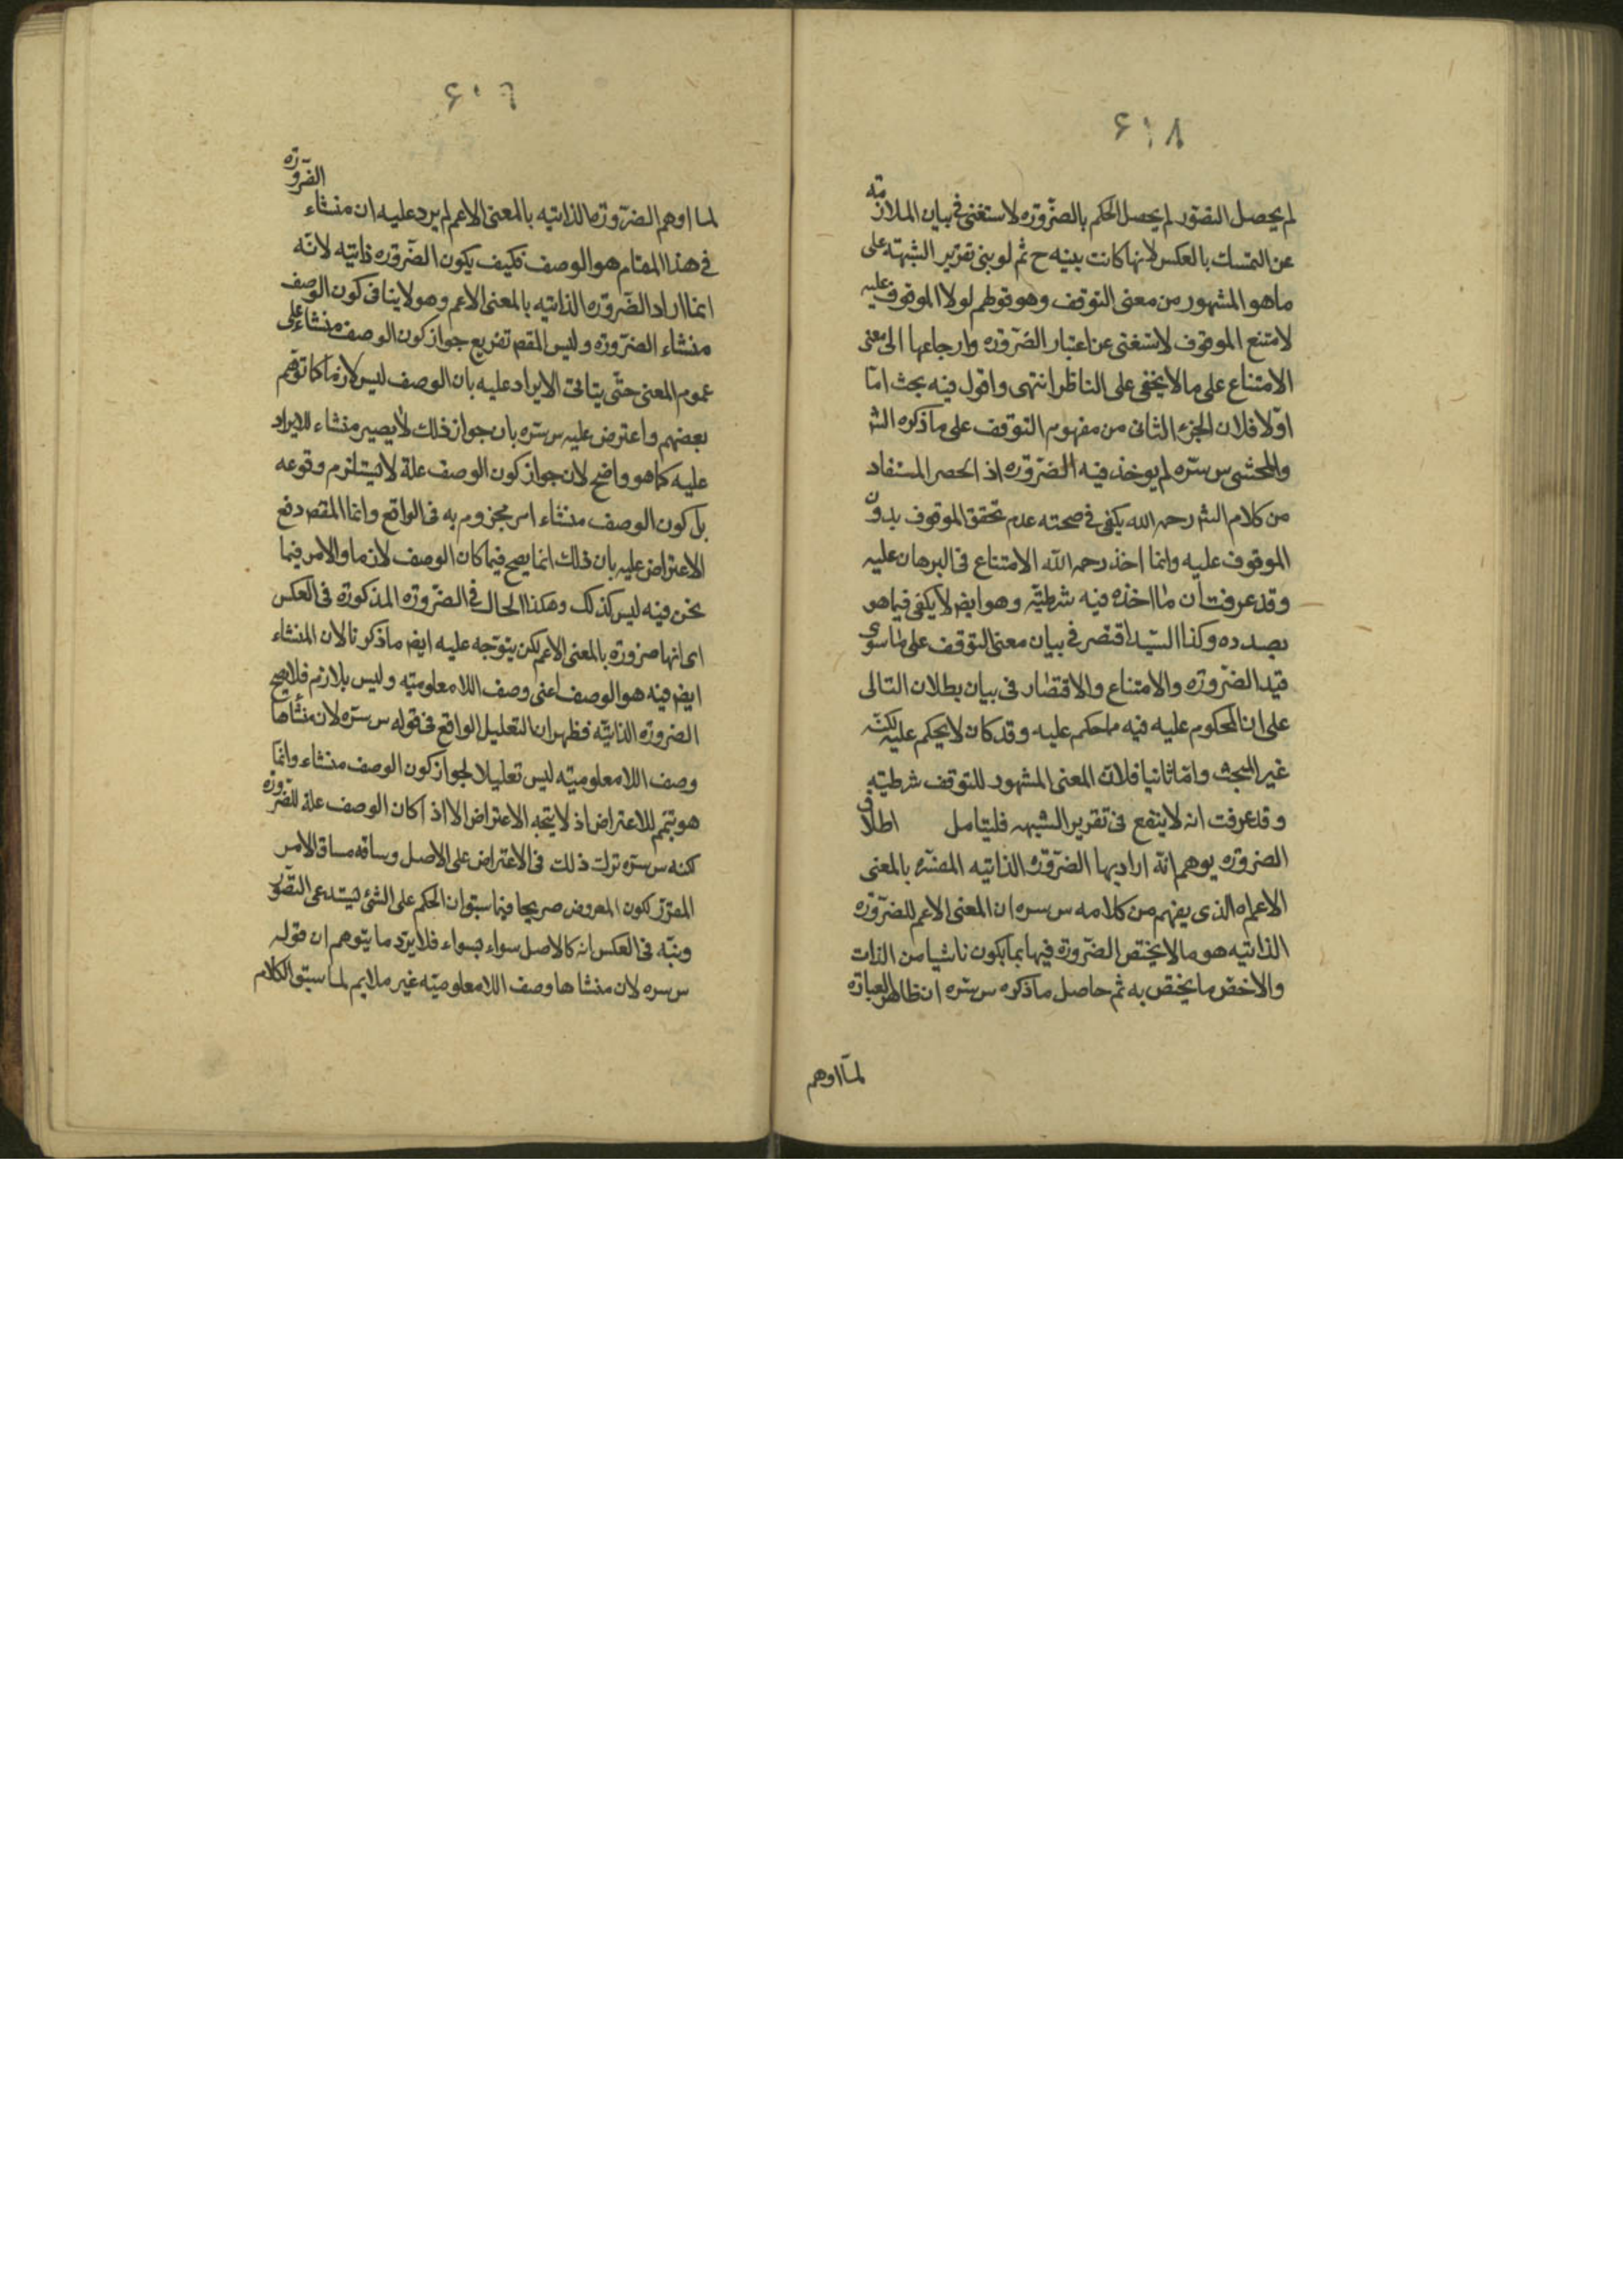 ۶۱۸
لم يحصل التصور لم يحصل الحكم بالضّرورة لاستغنى فى بيان الملازمة
عن التمسك بالعكس لانها كانت بينه ح ثم لو بنى تقرير الشبهة على
ما هو المشهور من معنى التوقف وهو قولهم لولا الموقوف عليه
لامتنع الموقوف لاستغنى عن اعتبار الضّرورة وارجاعها الى معنى
الامتناع على ما لا يخفى على الناظر انتهى واقول فيه بحث امّا
اوّلا فلان الجزء الثانى من مفهوم التوقف على ما ذكره الشر
والمحشى س سّره لم يوخذ فيه الضّرورة اذ الحصر المستفاد
من كلام الشر رحمه الله يكفى فى صحته عدم تحقق الموقوف بدون
الموقوف عليه وانما اخذ رحمه الله الامتناع فى البرهان عليه
وقد عرفت ان ما اخذه فيه شرطيّه وهو ايضا لا يكفى فيما هو
بصدده وكذا السّيد اقتصر فى بيان معنى التوقف على ما سوى
قيد الضّرورة والامتناع والاقتصار فى بيان بطلان التالى
على ان المحكوم عليه فيه ما حكم عليه وقد كان لا يحكم عليه لكنّه
غير المبحث وامّا ثانيا فلانّ المعنى المشهور للتوقف شرطيّه
وقد عرفت انه لا ينفع فى تقرير الشبهه فليتامل اطلاق
الضرورة يوهم انّه اراد بها الضّرورة الذاتيه المفسّره بالمعنى
الاعم اه الذى يفهم من كلامه س سره ان المعنى الاعم للضّرورة
الذاتيه هو ما لا يختص الضّرورة فيها بما يكون ناشيا من الذات
والاخصّ ما يختص به ثم حاصل ما ذكره س سّره ان ظاهر العبارة
لمّا اوهم
۶۱۹
لما اوهم الضّرورة الذاتيه بالمعنى الاعم لم يرد عليه ان منشاء الضّرورة
فى هذا المقام هو الوصف فكيف يكون الضّرورة ذاتيه لانّه
انما اراد الضّرورة الذاتيه بالمعنى الاعم وهو لا ينافى كون الوصف
منشاء الضّرورة وليس المقصم تفريع جواز كون الوصف منشاء على
عموم المعنى حتّى يتاتى الايراد عليه بان الوصف ليس لازما كما توهّم
بعضهم واعترض عليه س سّره بان جواز ذلك لا يصير منشاء للايراد
عليه كما هو واضح لان جواز كون الوصف علة لا يستلزم وقوعه
بل كون الوصف منشاء امر مجزوم به فى الواقع وانما المقصم دفع
الاعتراض عليه بان ذلك انما يصح فيما كان الوصف لازما والامر فيما
نحن فيه ليس كذلك وهكذا الحال فى الضّرورة المذكورة فى العكس
اى انها ضرورة بالمعنى الاعم لكن يتوجه عليه ايضا ما ذكرنا لان المنشاء
ايضا فيه هو الوصف اعنى وصف اللا معلوميّه وليس بلازم فلا يصح
الضرورة الذاتيّه فظهر ان التعليل الواقع فى قوله س سّره لان منشأها
وصف اللا معلوميّه ليس تعليلا لجواز كون الوصف منشاء وانّما
هو تتمم للاعتراض اذ لا يتجه الاعتراض الا اذ اكان الوصف علة للضّرورة
لكنه س سّره ترك ذلك فى الاعتراض على الاصل وساقه مساق الامر
المقرّر لكون المعروض صريحا فيما سبق ان الحكم على الشئ يستدعى التصّور
ونبّه فى العكس انه كالاصل سواء بسواء فلا يرد ما يتوهم ان قوله
س سره لان منشاها وصف اللا معلوميّه غير ملايم لما سبق الكلام